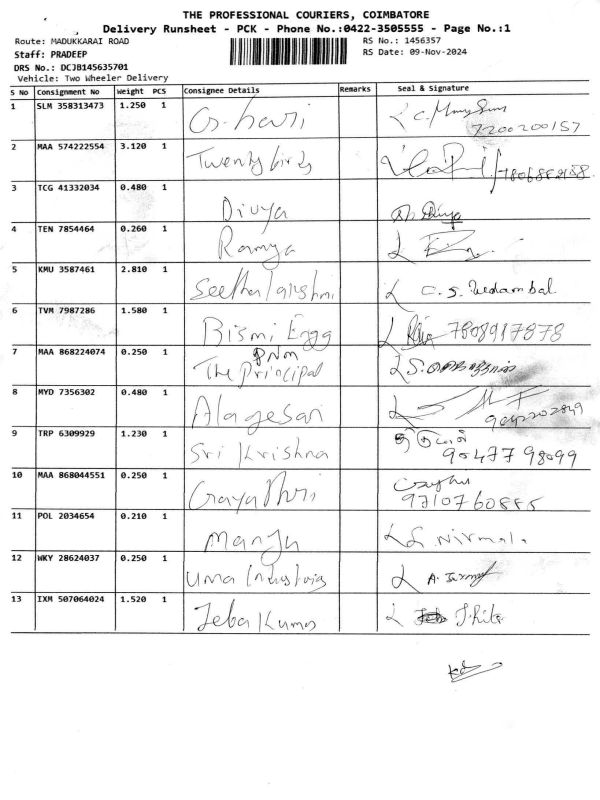 THE PROFESSIONAL COURIERS, COIMBATORE
Delivery Runsheet - PCK - Phone No.:0422-3505555 - Page No.:1
Route: MADUKKARAI ROAD RS No.: 1456357
Staff: PRADEEP RS Date: 09-Nov-2024
DRS No.: DCJB145635701
Vehicle: Two Wheeler Delivery
S No Consignment No Weight PCS Consignee Details Remarks Seal & Signature
1 SLM 358313473 1.250 1 G. hari
7200200157
2 MAA 574222554 3.120 1 Twenty birds
7806882188
3 TCG 41332034 0.480 1 Divya Divya
4 TEN 7854464 0.260 1 Ramya
5 KMU 3587461 2.810 1 Seetha lakshmi C. S. Vedambal
6 TVM 7987286 1.580 1 Bismi Engg 7808917878
7 MAA 868224074 0.250 1 The Principal
8 MYD 7356302 0.480 1 Alagesan
9042202849
9 TRP 6309929 1.230 1 Sri Krishna
90477 98099
10 MAA 868044551 0.250 1 Gayathri
9710760885
11 POL 2034654 0.210 1 Manju Nirmala
12 WKY 28624037 0.250 1 Uma Industries A.
13 IXM 507064024 1.520 1 Jeba Kumar